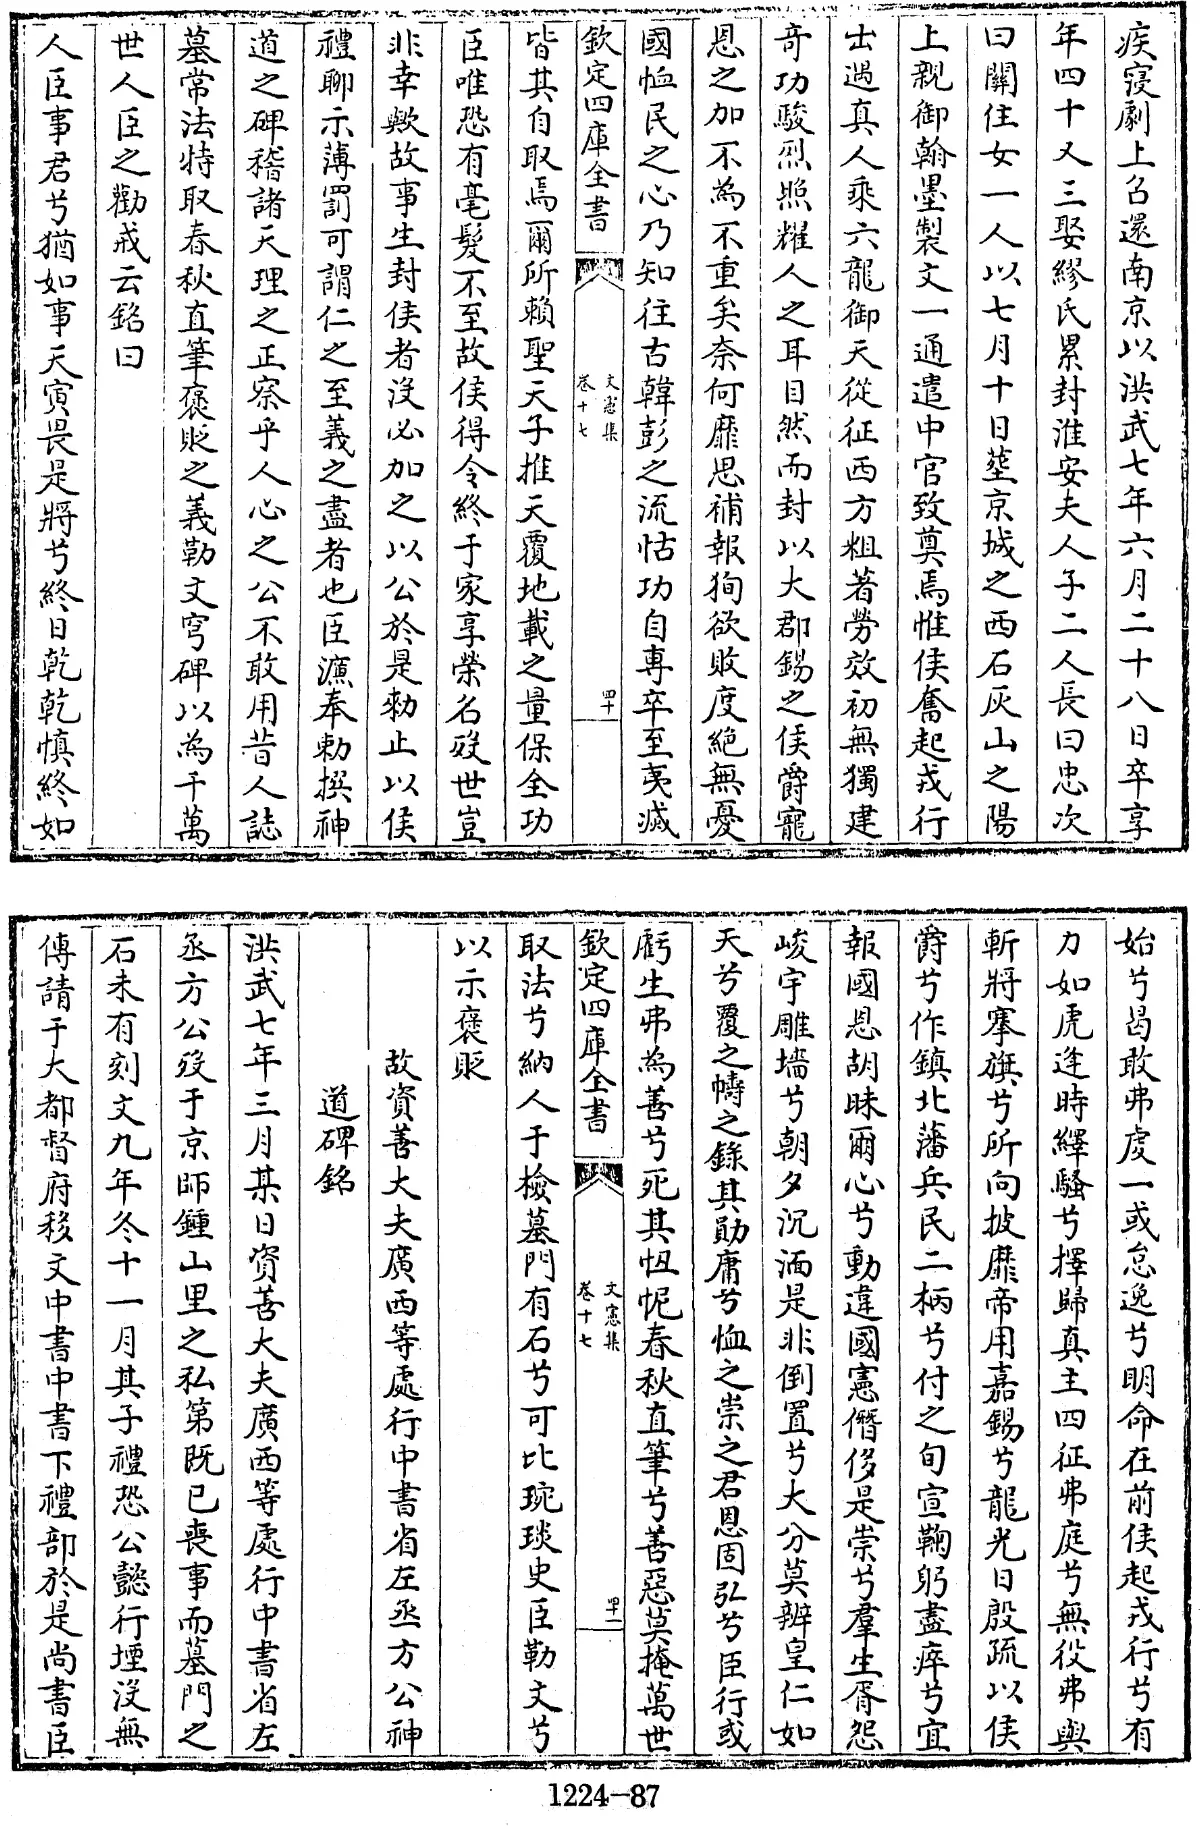 疾寖劇上召還南京以洪武七年六月二十八日卒享
年四十又三娶繆氏累封淮安夫人子二人長曰忠次
曰關住女一人以七月十日塟京城之西石灰山之陽
上親御翰墨製文一通遣中官致奠焉惟侯奮起戎行
出遇真人乘六龍御天從征西方粗著勞效初無獨建
奇功駿烈照耀人之耳目然而封以大郡錫之侯爵寵
恩之加不為不重矣奈何靡思補報狥欲敗度絕無憂
國恤民之心乃知往古韓彭之流怙功自專卒至夷滅
欽定四庫全書
文憲集
卷十七
四十
皆其自取焉爾所賴聖天子推天覆地載之量保全功
臣唯恐有毫髮不至故侯得令終于家享榮名歿世豈
非幸歟故事生封侯者沒必加之以公於是勅止以侯
禮聊示薄罰可謂仁之至義之盡者也臣濂奉勅撰神
道之碑稽諸天理之正察乎人心之公不敢用昔人誌
墓常法特取春秋直筆褒貶之義勒文穹碑以為千萬
世人臣之勸戒云銘曰
人臣事君兮猶如事天寅畏是將兮終日乾乾慎終如
始兮曷敢弗虔一或怠逸兮明命在前侯起戎行兮有
力如虎逢時繹騷兮擇歸真主四征弗庭兮無役弗與
斬將搴旗兮所向披靡帝用嘉錫兮龍光日殷疏以侯
爵兮作鎮北藩兵民二柄兮付之旬宣鞠躬盡瘁兮宜
報國恩胡昧爾心兮動違國憲僭侈是崇兮羣生胥怨
峻宇雕墻兮朝夕沉湎是非倒置兮大分莫辨皇仁如
天兮覆之幬之錄其勛庸兮恤之崇之君恩固弘兮臣行或
虧生弗為善兮死其忸怩春秋直筆兮善惡莫掩萬世
欽定四庫全書
文憲集
卷十七
四十一
取法兮納人于檢墓門有石兮可比琬琰史臣勒文兮
以示褒貶
故資善大夫廣西等處行中書省左丞方公神
道碑銘
洪武七年三月某日資善大夫廣西等處行中書省左
丞方公歿于京師鍾山里之私第既已喪事而墓門之
石未有刻文九年冬十一月其子禮恐公懿行堙沒無
傳請于大都督府移文中書中書下禮部於是尚書臣
1224-87